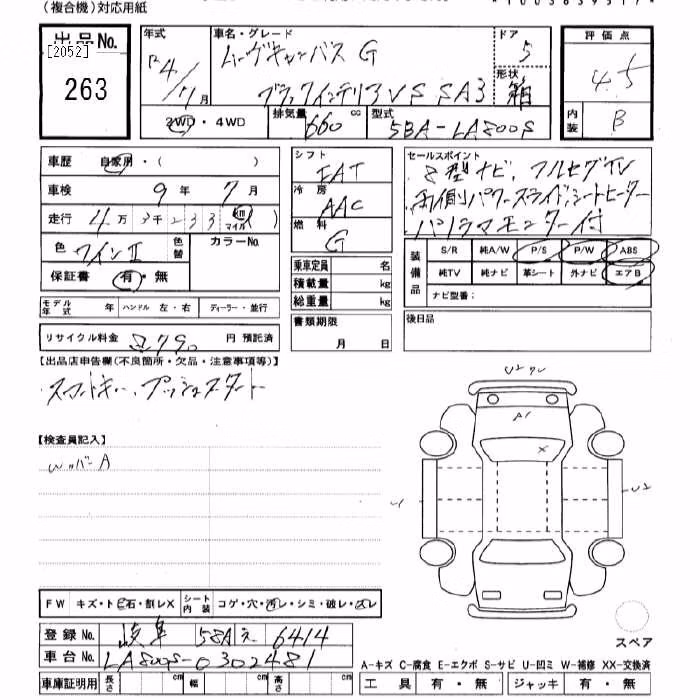 (複合機)対応用紙
出品No.
[2052]
263
年式
R4/7月
車名・グレード
ムーヴキャンバス G
ブラックインテリアVS SA3
ドア
5
形状
箱
2WD・4WD
排気量 660 cc
型式 5BA-LA800S
評価点
4.5
内装 B
車歴 自家用・( )
車検 9年7月
走行 4万3千233 km マイル ( )
色 ワインII 色替
カラーNo.
保証書 有・無
モデル年式 年 ハンドル 左・右 ディーラー・並行
リサイクル料金 8790円 預託済
シフト
FAT
冷房
AAC
燃料
G
乗車定員 名
積載量 kg
総重量 kg
書類期限
月 日
セールスポイント
8型ナビ、フルセグTV
両側パワースライド、シートヒーター
パノラマモニター付
装備品
S/R 純A/W P/S P/W ABS
純TV 純ナビ 革シート 外ナビ エアB
ナビ型番:
後日品
【出品店申告欄(不良箇所・欠品・注意事項等)】
スマートキー、プッシュスタート
【検査員記入】
Wバー A
A1
X
FW キズ・ト石・割レX
シート内装 コゲ・穴・汚レ・シミ・破レ・スレ
登録No. 岐阜 58A え 6414
車台No. LA800S-0302481
車庫証明用 長さ cm 幅 cm 高さ cm
スペア
A-キズ C-腐食 E-エクボ S-サビ U-凹ミ W-補修 XX-交換済
工具 有・無 ジャッキ 有・無